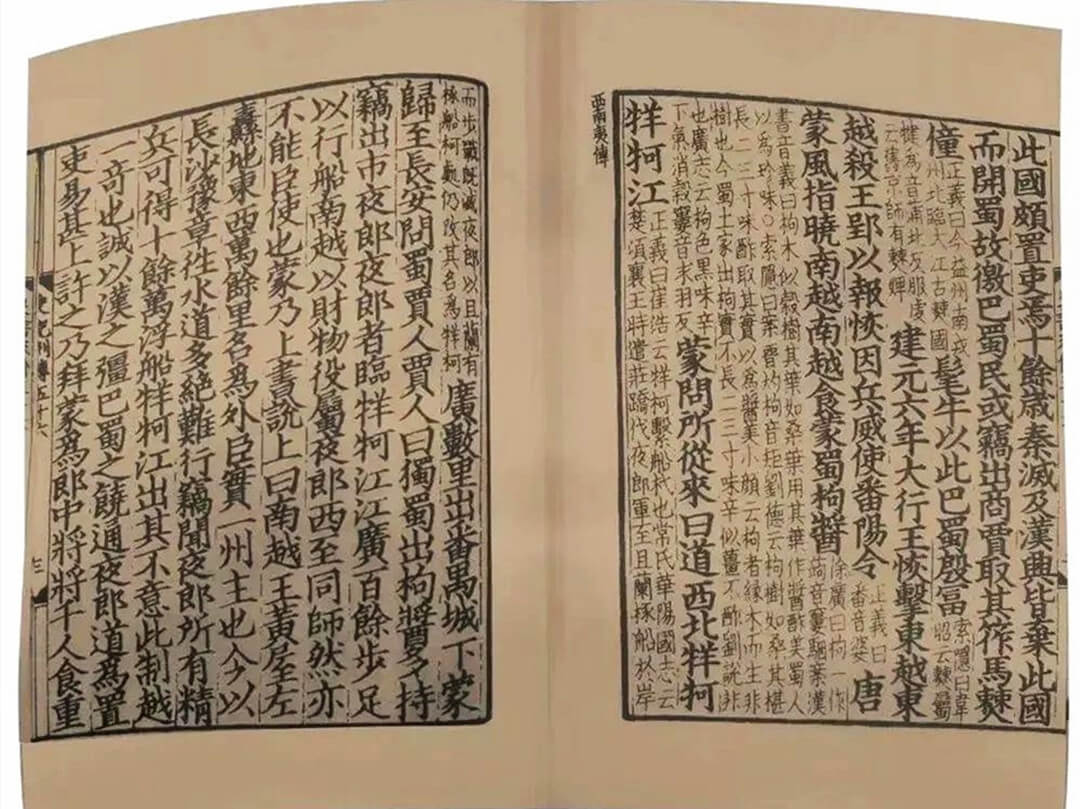 此國頗置吏焉十餘歲秦滅及漢興皆棄此國
而開蜀故徼巴蜀民或竊出商賈取其筰馬僰
僮正義曰今益州南戎州北臨大江古僰國髦牛以此巴蜀殷富索隱曰韋昭云僰屬
犍爲音蒲北反服虔云舊京師有僰婢建元六年大行王恢擊東越東
越殺王郢以報恢因兵威使番陽令正義曰番音婆唐
蒙風指曉南越南越食蒙蜀枸醬徐廣曰枸一作蒟音窶駰案漢
書音義曰枸木似穀樹其葉如桑葉用其葉作醬酢美蜀人
以爲珍味○索隱曰案晉灼枸音矩劉德云枸樹如桑其椹
長二三寸味酢取其實以爲醬美小顔云枸者緣木而生非
樹也今蜀土家出枸實不長二三寸味辛似薑不酢劉説非
也廣志云枸色黑味辛下氣消穀窶音求羽反蒙問所從來曰道西北牂柯
牂柯江正義曰崔浩云牂柯繫船杙也常氏華陽國志云楚頃襄王時遣莊蹻伐夜郎軍至且蘭椓船於岸
西南夷傳
而步戰既滅夜郎以且蘭有椓船柯處仍改其名爲牂柯廣數里出番禺城下蒙
歸至長安問蜀賈人賈人曰獨蜀出枸醬多持
竊出市夜郎夜郎者臨牂柯江江廣百餘步足
以行船南越以財物役屬夜郎西至同師然亦
不能臣使也蒙乃上書說上曰南越王黃屋左
纛地東西萬餘里名爲外臣實一州主也今以
長沙豫章往水道多絕難行竊聞夜郎所有精
兵可得十餘萬浮船牂柯江出其不意此制越
一奇也誠以漢之彊巴蜀之饒通夜郎道爲置
吏易甚上許之乃拜蒙爲郎中將將千人食重
史記列傳五十六
三